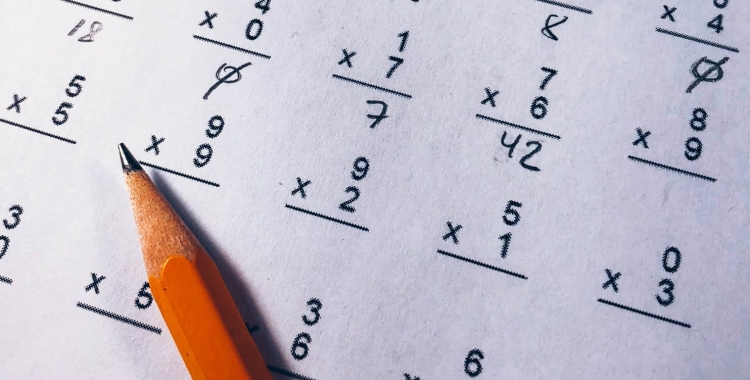 18
4
x 0
0
1
x 7
7
8
x 4
0
5
x 5
9
x 9
7
x 6
42
8
x 9
9
x 2
5
x 1
0
x 3
3
x 5
3
6
6
x